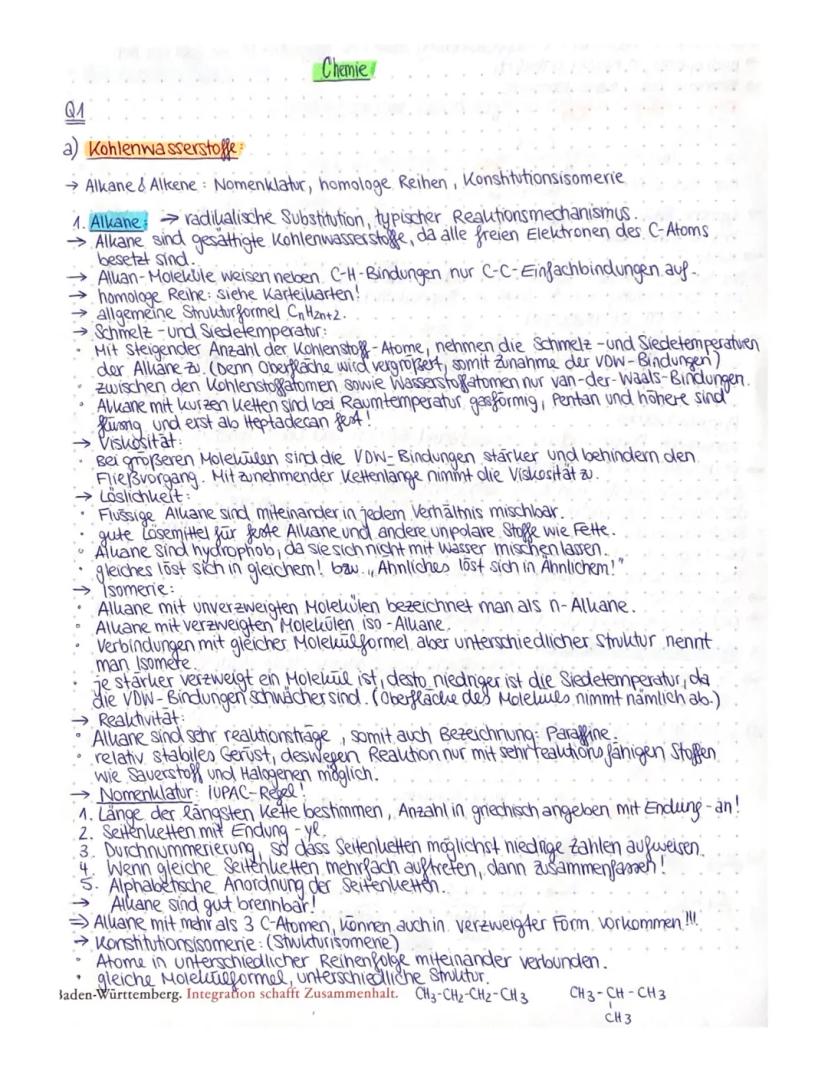 Chemie
Q1
a) Kohlenwasserstoffe:
→ Alkane & Alkene: Nomenklatur, homologe Reihen, Konstitutionsisomerie
1. Alkane: → radikalische Substitution, typischer Reaktionsmechanismus.
→ Alkane sind gesättigte Kohlenwasserstoffe, da alle freien Elektronen des C-Atoms
besetzt sind.
→ Alkan-Moleküle weisen neben C-H-Bindungen nur C-C-Einfachbindungen auf.
→ homologe Reihe: siehe Karteikarten!
→ allgemeine Strukturformel CnH2n+2.
→ Schmelz- und Siedetemperatur:
• Mit steigender Anzahl der Kohlenstoff-Atome, nehmen die Schmelz- und Siedetemperaturen
der Alkane zu. (Denn Oberfläche wird vergrößert, somit Zunahme der VDW-Bindungen)
• zwischen den Kohlenstoffatomen sowie Wasserstoffatomen nur van-der-Waals-Bindungen.
• Alkane mit kurzen Ketten sind bei Raumtemperatur gasförmig, Pentan und höhere sind
flüssig und erst ab Heptadecan fest!
→ Viskosität:
• Bei größeren Molekülen sind die VDW-Bindungen stärker und behindern den
Fließvorgang. Mit zunehmender Kettenlänge nimmt die Viskosität zu.
→ Löslichkeit:
• Flüssige Alkane sind miteinander in jedem Verhältnis mischbar.
• gute Lösemittel für feste Alkane und andere unpolare Stoffe wie Fette.
• Alkane sind hydrophob, da sie sich nicht mit Wasser mischen lassen.
• gleiches löst sich in gleichem! bzw. „Ähnliches löst sich in Ähnlichem!"
→ Isomerie:
• Alkane mit unverzweigten Molekülen bezeichnet man als n-Alkane.
• Alkane mit verzweigten Molekülen iso-Alkane.
• Verbindungen mit gleicher Molekülformel aber unterschiedlicher Struktur nennt
man Isomere.
• je stärker verzweigt ein Molekül ist, desto niedriger ist die Siedetemperatur, da
die VDW-Bindungen schwächer sind. (Oberfläche des Moleküls nimmt nämlich ab.)
→ Reaktivität:
• Alkane sind sehr reaktionsträge, somit auch Bezeichnung: Paraffine.
• relativ stabiles Gerüst, deswegen Reaktion nur mit sehr reaktionsfähigen Stoffen
wie Sauerstoff und Halogenen möglich.
→ Nomenklatur: IUPAC-Regel!
1. Länge der längsten Kette bestimmen, Anzahl in griechisch angeben mit Endung -an!
2. Seitenketten mit Endung -yl.
3. Durchnummerierung, so dass Seitenketten möglichst niedrige Zahlen aufweisen.
4. Wenn gleiche Seitenketten mehrfach auftreten, dann zusammenfassen!
5. Alphabetische Anordnung der Seitenketten.
→ Alkane sind gut brennbar!
⇒ Alkane mit mehr als 3 C-Atomen, können auch in verzweigter Form vorkommen!!!
→ Konstitutionsisomerie: (Strukturisomerie)
• Atome in unterschiedlicher Reihenfolge miteinander verbunden.
• gleiche Molekülformel, unterschiedliche Struktur.
Baden-Württemberg. Integration schafft Zusammenhalt. CH3-CH2-CH2-CH3 CH3-CH-CH3
CH3